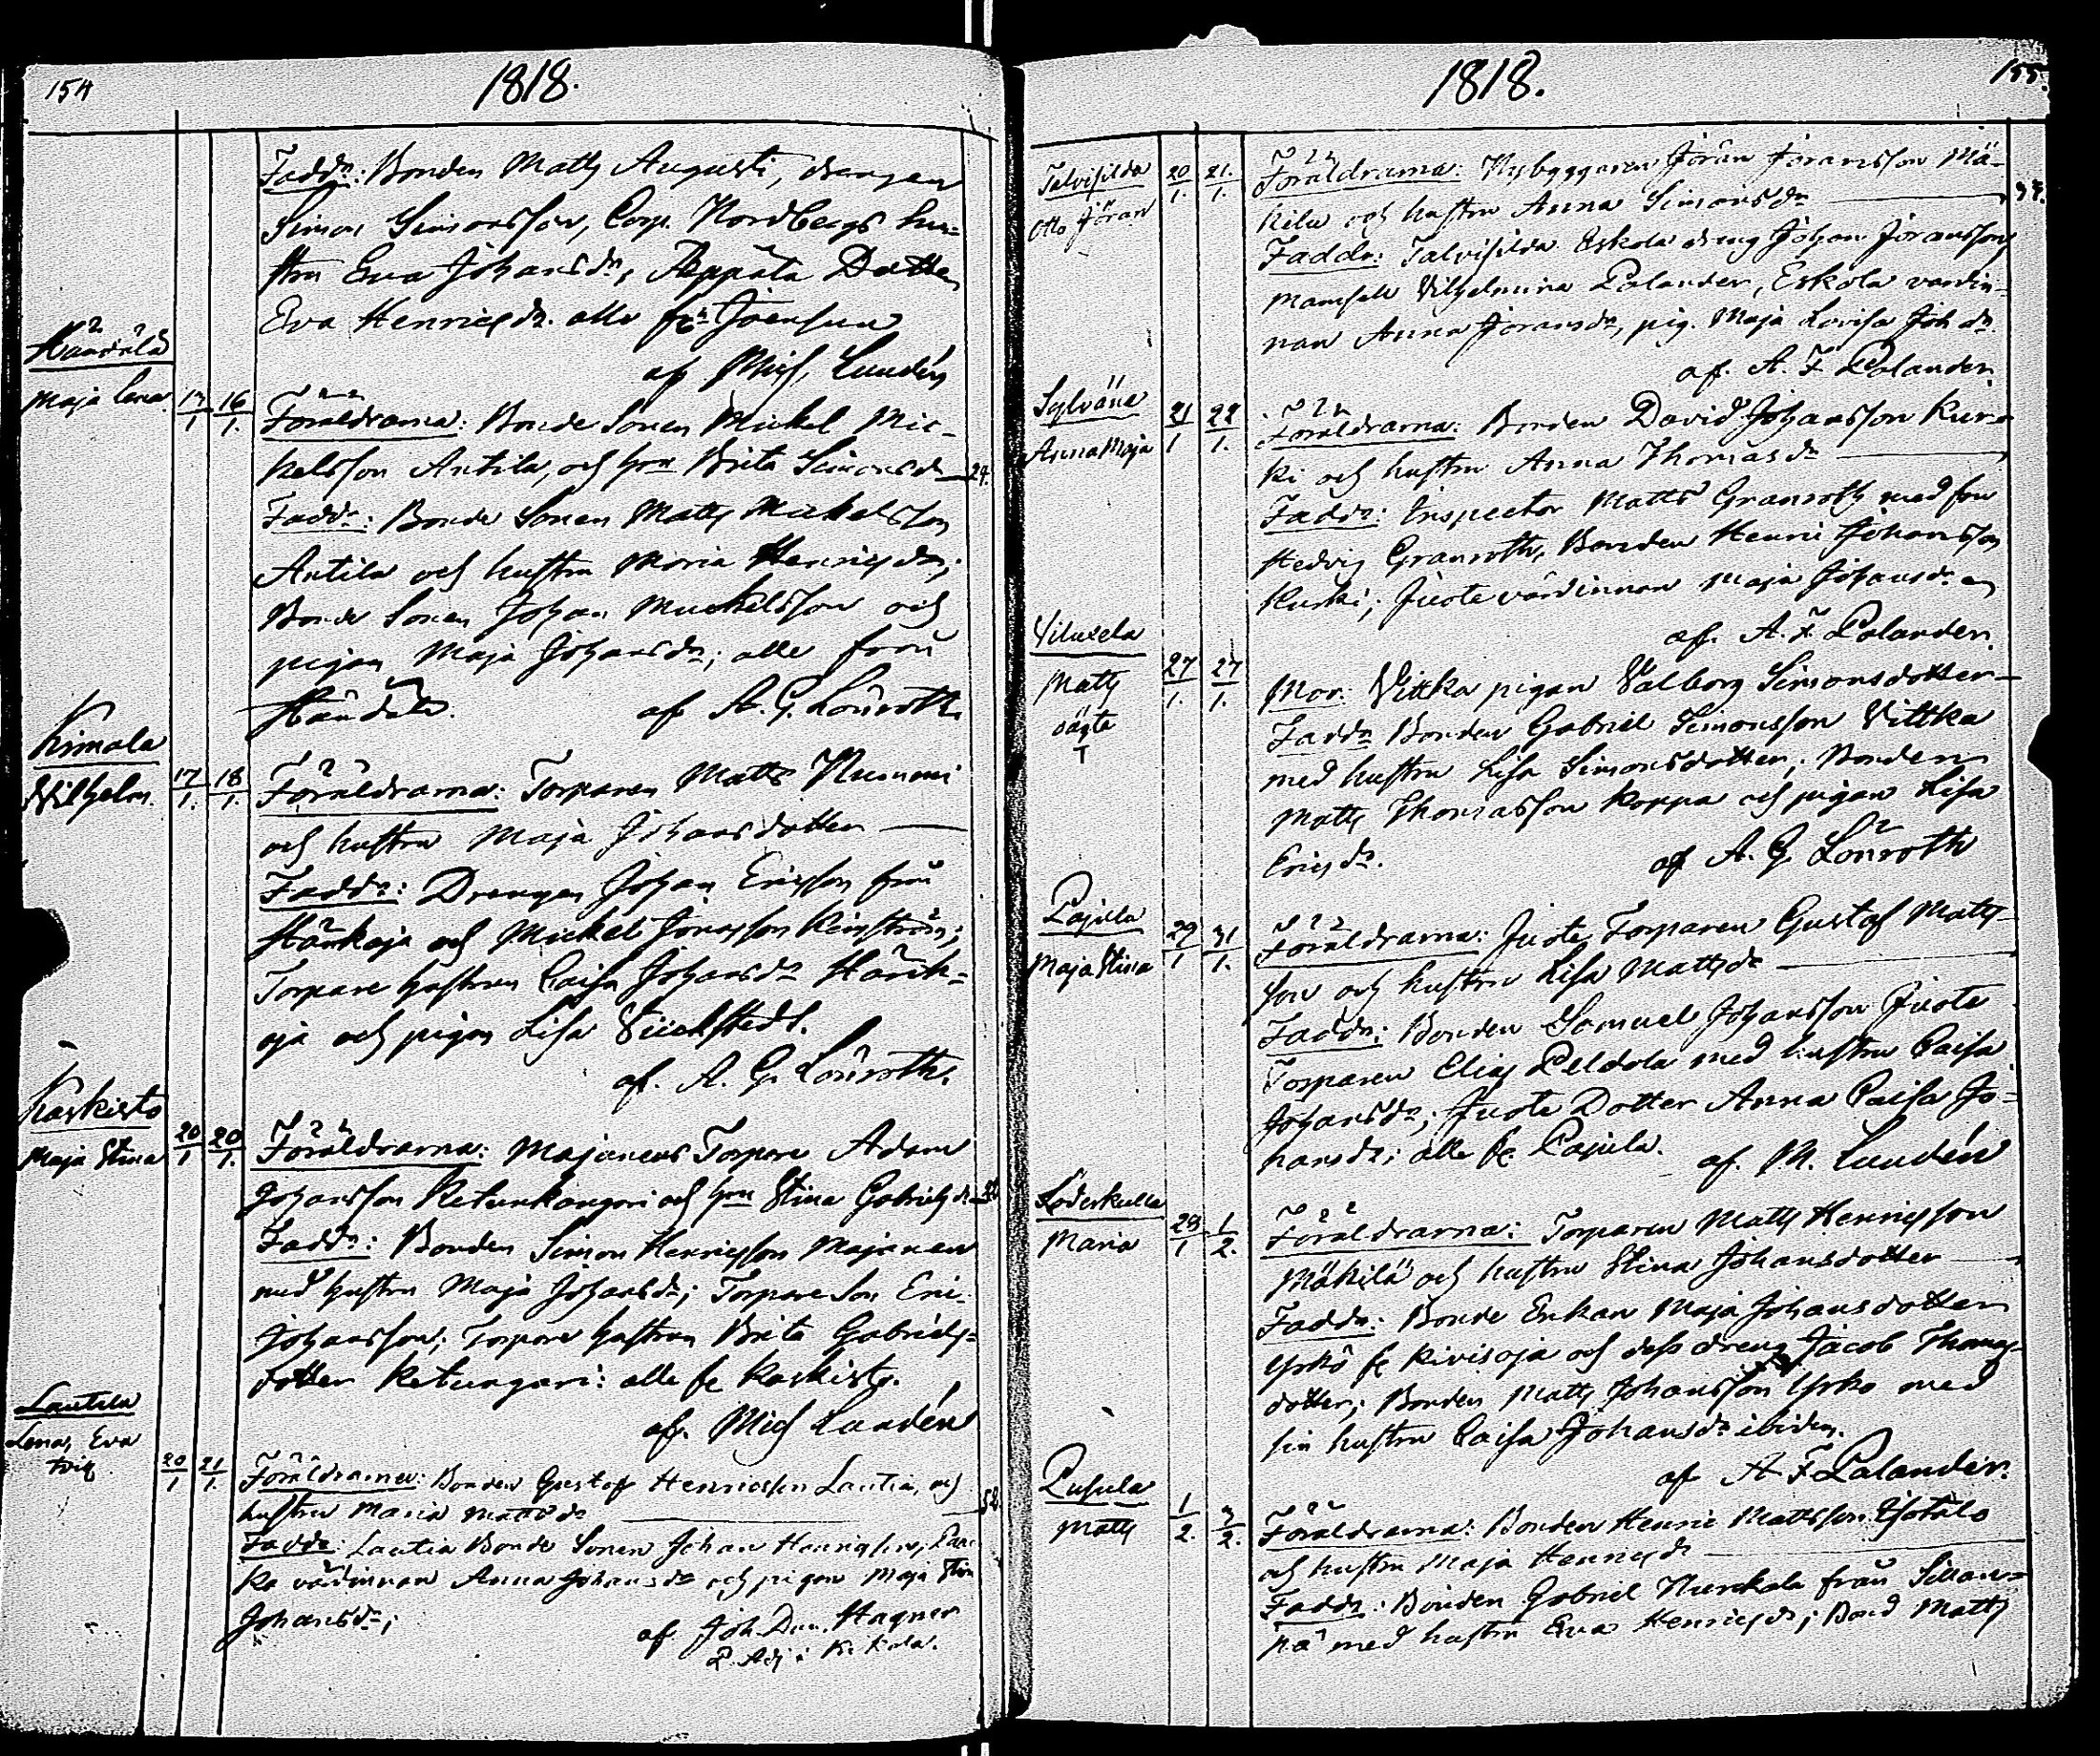 154
1818.
Fadd:r: Bonden Matts Augusti, drengen
Simon Simonsson, Corp. Nordbergs hu-
stru Eva Johansdr, Peppäla Dotter
Eva Henricsdr. alla fr: Joensuu
af Mich. Lundén
Maja Lena. 16/1.
Föräldrarna: Bonde Sonen Mickel Mic-
kelsson Antila, och hru Brita Simonsd 24.
Faddr: Bonde Sonen Matts Mickelsson
Antila och hustru Maria Henricsdr;
Bonde Sonen Johan Mickelsson och
pigan Maja Johansdr; alla från
af A. G. Lönroth.
Kimala
Vilhelm. 17/1. 18/1.
Föräldrarna: Torparen Matts Nummi
och hustru Maja Johansdotter
Faddr: Drengen Johan Ericsson från
Hänkoja och Mickel Jonasson
Torpare hustrun Caisa Johansdr
oja och pigan Lisa
af. A. G. Lönroth.
Karkisto
Maja Stina 20/1 20/1.
Föräldrarna: Majanens Torpare Adam
Johansson Ketunkangari och hru Stina Gabrielsdr
Faddr: Bonden Simon Henricsson Majanen
med hustru Maja Johansdr; Torpare Son Eric
Johansson; Torpare hustrun Brita Gabriels-
dotter Ketungari: alla fr Karkisto.
af. Mich Lundén
Lautela
Lena, Eva
tvil. 20/1 21/1.
Föräldrarna: Bonden Gustaf Henricsson Lautia, och
hustru Maria Mattsdr
Faddr: Lautia Bonde Sonen Johan Henricsson;
ka värdinnan Anna Johansdr och pigan Maja Stin
Johansdr;
af Joh. Dan. Hagner
1818.
155.
Talvisilda
Otto Jöran 20/1. 21./1.
Föräldrarna: Nybyggaren Jöran Jöransson Mä-
kilu och hustru Anna Simonsdr 37.
Faddr: Talvisilda Eskola dreng Johan Jöransson,
Mamsell Vilhelmina Polander, Eskola värdin-
nan Anna Jöransdr, pig. Maja Lovisa Joh dr
af. A. F. Polander.
Sylvänä
Anna Maja 21/1 22/1.
Föräldrarna: Bonden David Johansson Kur-
ki och hustru Anna Thomasdr
Faddr: Inspector Matts Granroth med fru
Hedvig Granroth, Bonden Henric Johansson
Kurki; Juote värdinnan Maja Johansdr
af. A. F. Polander.
Viluxela
Matts
oägta
T 27/1. 27/1.
Mor: Vittka pigan Valborg Simonsdotter
Faddr Bonden Gabriel Simonsson Vittka
med hustru Lisa Simonsdotter; Bonden
Matts Thomasson Koppa och pigan Lisa
Ericsdr.
af A. G. Lönroth
Pajula
Maja Stina 29/1 31/1.
Föräldrarna: Juote Torparen Gustaf Matts-
son och hustru Lisa Mattsdr
Faddr: Bonden Samuel Johansson Juote
Torparen Elias Peldola med hustru Caisa
Johansdr; Juote Dotter Anna Caisa Jo-
hansdr; alle fr Pajula.
af. M. Lundén
Loderkulla
Maria 29/1 1/2.
Föräldrarna: Torparen Matts Henricsson
Mäkilä och hustru Stina Johansdotter
Faddr: Bonde Enkan Maja Johansdotter
Yrkö fr Kivisoja och dess dreng Jacob Thomas-
dotter; Bonden Matts Johansson Yrkö med
sin hustru Caisa Johansdr ibidem.
af A F Polander.
Pusula
Matts 1/2. 3/2.
Föräldrarna: Bonden Henric Mattsson
och hustru Maja Henricsdr
Faddr: Bonden Gabriel från
pä med hustru Eva Henricsdr; Bond Matts